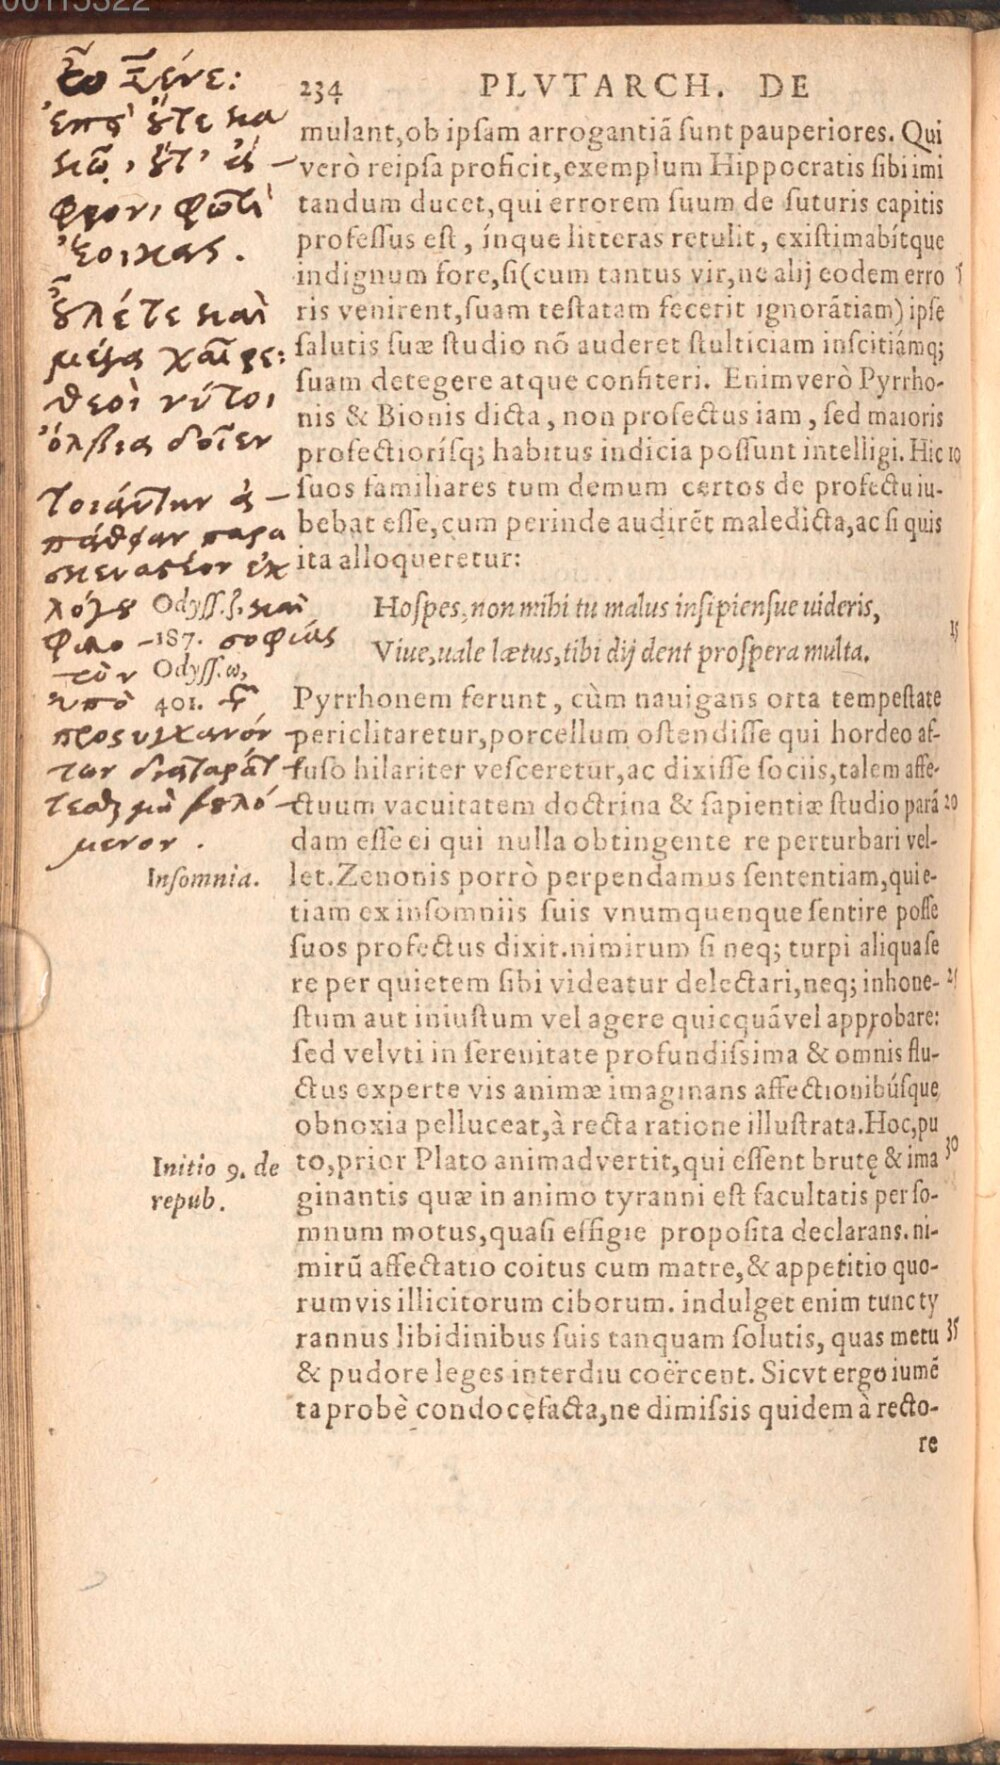 00115322
ὦ Ξένε:
ἐπεὶ ȣ̓́τε κα
κῷ, ȣ̓́τ' ἀ-
φρονι φωτὶ
ἔοικας.
ȣ̓͂λέ τε καὶ
μέγα χαῖρε:
θεοὶ νύ τοι
ὄλβια δοῖεν
τοιάυτην ἀ-
πάθειαν παρα
σκευαστέον ἐκ
λόγȣ καὶ
φιλοσοφίας
τὸν
ὑπὸ τ͂
προςυγχανόν
των διαταράτ
τεσθ μὴ βȣλό-
μενον.
Odyss.ζ.
187.
Odyss.ω,
401.
Insomnia.
Initio 9. de
repub.
234 PLVTARCH. DE
mulant, ob ipsam arrogantiã sunt pauperiores. Qui
verò reipsa proficit, exemplum Hippocratis sibi imi
tandum ducet, qui errorem suum de suturis capitis
professus est, ínque litteras retulit, existimabítque
indignum fore, si (cum tantus vir, ne alij eodem erro 5
ris venirent, suam testatam fecerit ignorãtiam) ipse
salutis suæ studio nõ auderet stulticiam inscitiámq;
suam detegere atque confiteri. Enimverò Pyrrho-
nis & Bionis dicta, non profectus iam, sed maioris
profectiorísq; habitus indicia possunt intelligi. Hic 10
suos familiares tum demum certos de profectu iu-
bebat esse, cum perinde audirẽt maledicta, ac si quis
ita alloqueretur:
Hospes, non mihi tu malus insipiensue uideris,
15
Viue, uale lætus, tibi dij dent prospera multa.
Pyrrhonem ferunt, cùm nauigans orta tempestate
periclitaretur, porcellum ostendisse qui hordeo af-
fuso hilariter vesceretur, ac dixisse sociis, talem affe-
ctuum vacuitatem doctrina & sapientiæ studio parã 20
dam esse ei qui nulla obtingente re perturbari vel-
let. Zenonis porrò perpendamus sententiam, quie-
tiam ex insomniis suis vnumquenque sentire posse
suos profectus dixit. nimirum si neq; turpi aliqua se
re per quietem sibi videatur delectari, neq; inhone- 25
stum aut iniustum vel agere quicquã vel approbare:
sed velvti in serenitate profundissima & omnis flu-
ctus experte vis animæ imaginans affectionibúsque
obnoxia pelluceat, à recta ratione illustrata. Hoc, pu
to, prior Plato animadvertit, qui essent brutę & ima 30
ginantis quæ in animo tyranni est facultatis per so-
mnum motus, quasi effigie proposita declarans. ni-
mirũ affectatio coitus cum matre, & appetitio quo-
rumvis illicitorum ciborum. indulget enim tunc ty
rannus libidinibus suis tanquam solutis, quas metu 35
& pudore leges interdiu coërcent. Sicvt ergo iumẽ
ta probè condocefacta, ne dimissis quidem à recto-
re